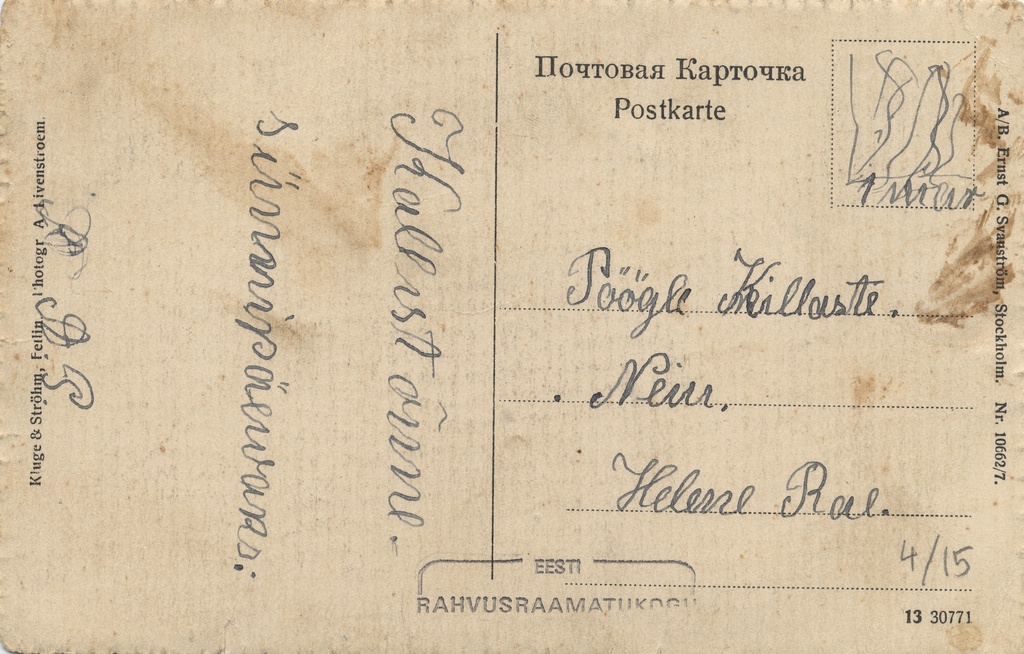 Почтовая Карточка
Postkarte
Pöögle Killaste.
Neiu,
Helene Rae.
4/15
13 30771
A/B. Ernst G. Svanström, Stockholm. Nr. 10662/7.
Kallist õnne
sünnipäewaks:
Kluge & Ströhm, Fellin Photogr A. Livenstroem.
EESTI
RAHVUSRAAMATUKOGU